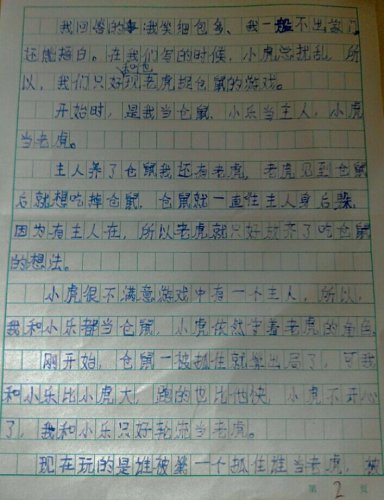 我回答的事我美细包多、我一般不出教门
还能插白。在我们写的时候，小虎总扰乱，所
和他
以，我们只好玩老虎捉仓鼠的游戏。
开始时，是我当仓鼠，小乐当主人，小虎
当老虎。
主人养了仓鼠我还有老虎，老虎见到仓鼠
后就想吃掉仓鼠，仓鼠就一直往主人身后躲，
因为有主人在，所以老虎就只好放弃了吃仓鼠
的想法。
小虎很不满意游戏中有一个主人，所以，
我和小乐都当仓鼠，小虎依然守着老虎的角色
刚开始，仓鼠一被抓住就算出局了，可我
和小乐比小虎大，跑的也比他快，小虎不开心
了，我和小乐只好轮流当老虎。
现在玩的是谁被第一个抓住谁当老虎，被
第 2 页